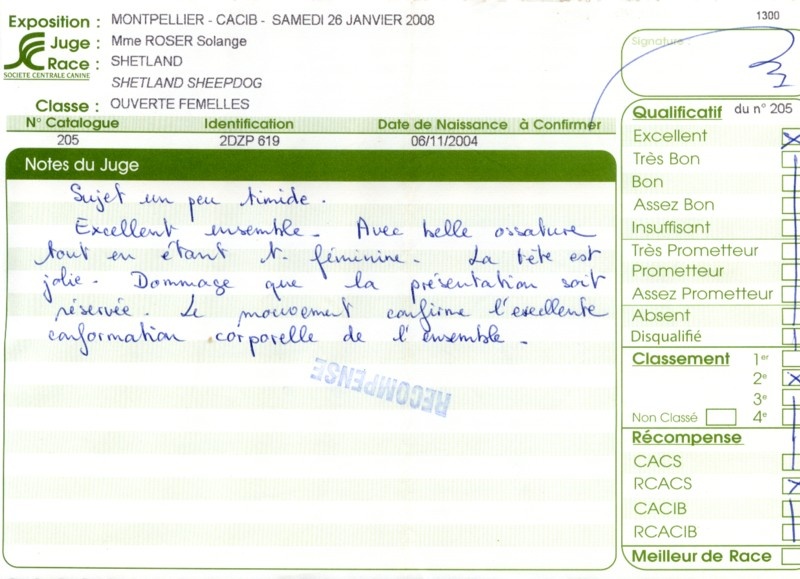 1300
Exposition : MONTPELLIER - CACIB - SAMEDI 26 JANVIER 2008
Juge : Mme ROSER Solange
Race : SHETLAND
SOCIETE CENTRALE CANINE
SHETLAND SHEEPDOG
Classe : OUVERTE FEMELLES
Signature :
N° Catalogue Identification Date de Naissance à Confirmer
205 2DZP 619 06/11/2004
Notes du Juge
Sujet un peu timide.
Excellent ensemble. Avec belle ossature
tout en étant t. féminine. La tête est
jolie. Dommage que la présentation soit
réservée. Le mouvement confirme l'excellente
conformation corporelle de l'ensemble.
RECOMPENSE
Qualificatif du n° 205
Excellent
Très Bon
Bon
Assez Bon
Insuffisant
Très Prometteur
Prometteur
Assez Prometteur
Absent
Disqualifié
Classement 1er
2e
3e
Non Classé 4e
Récompense
CACS
RCACS
CACIB
RCACIB
Meilleur de Race